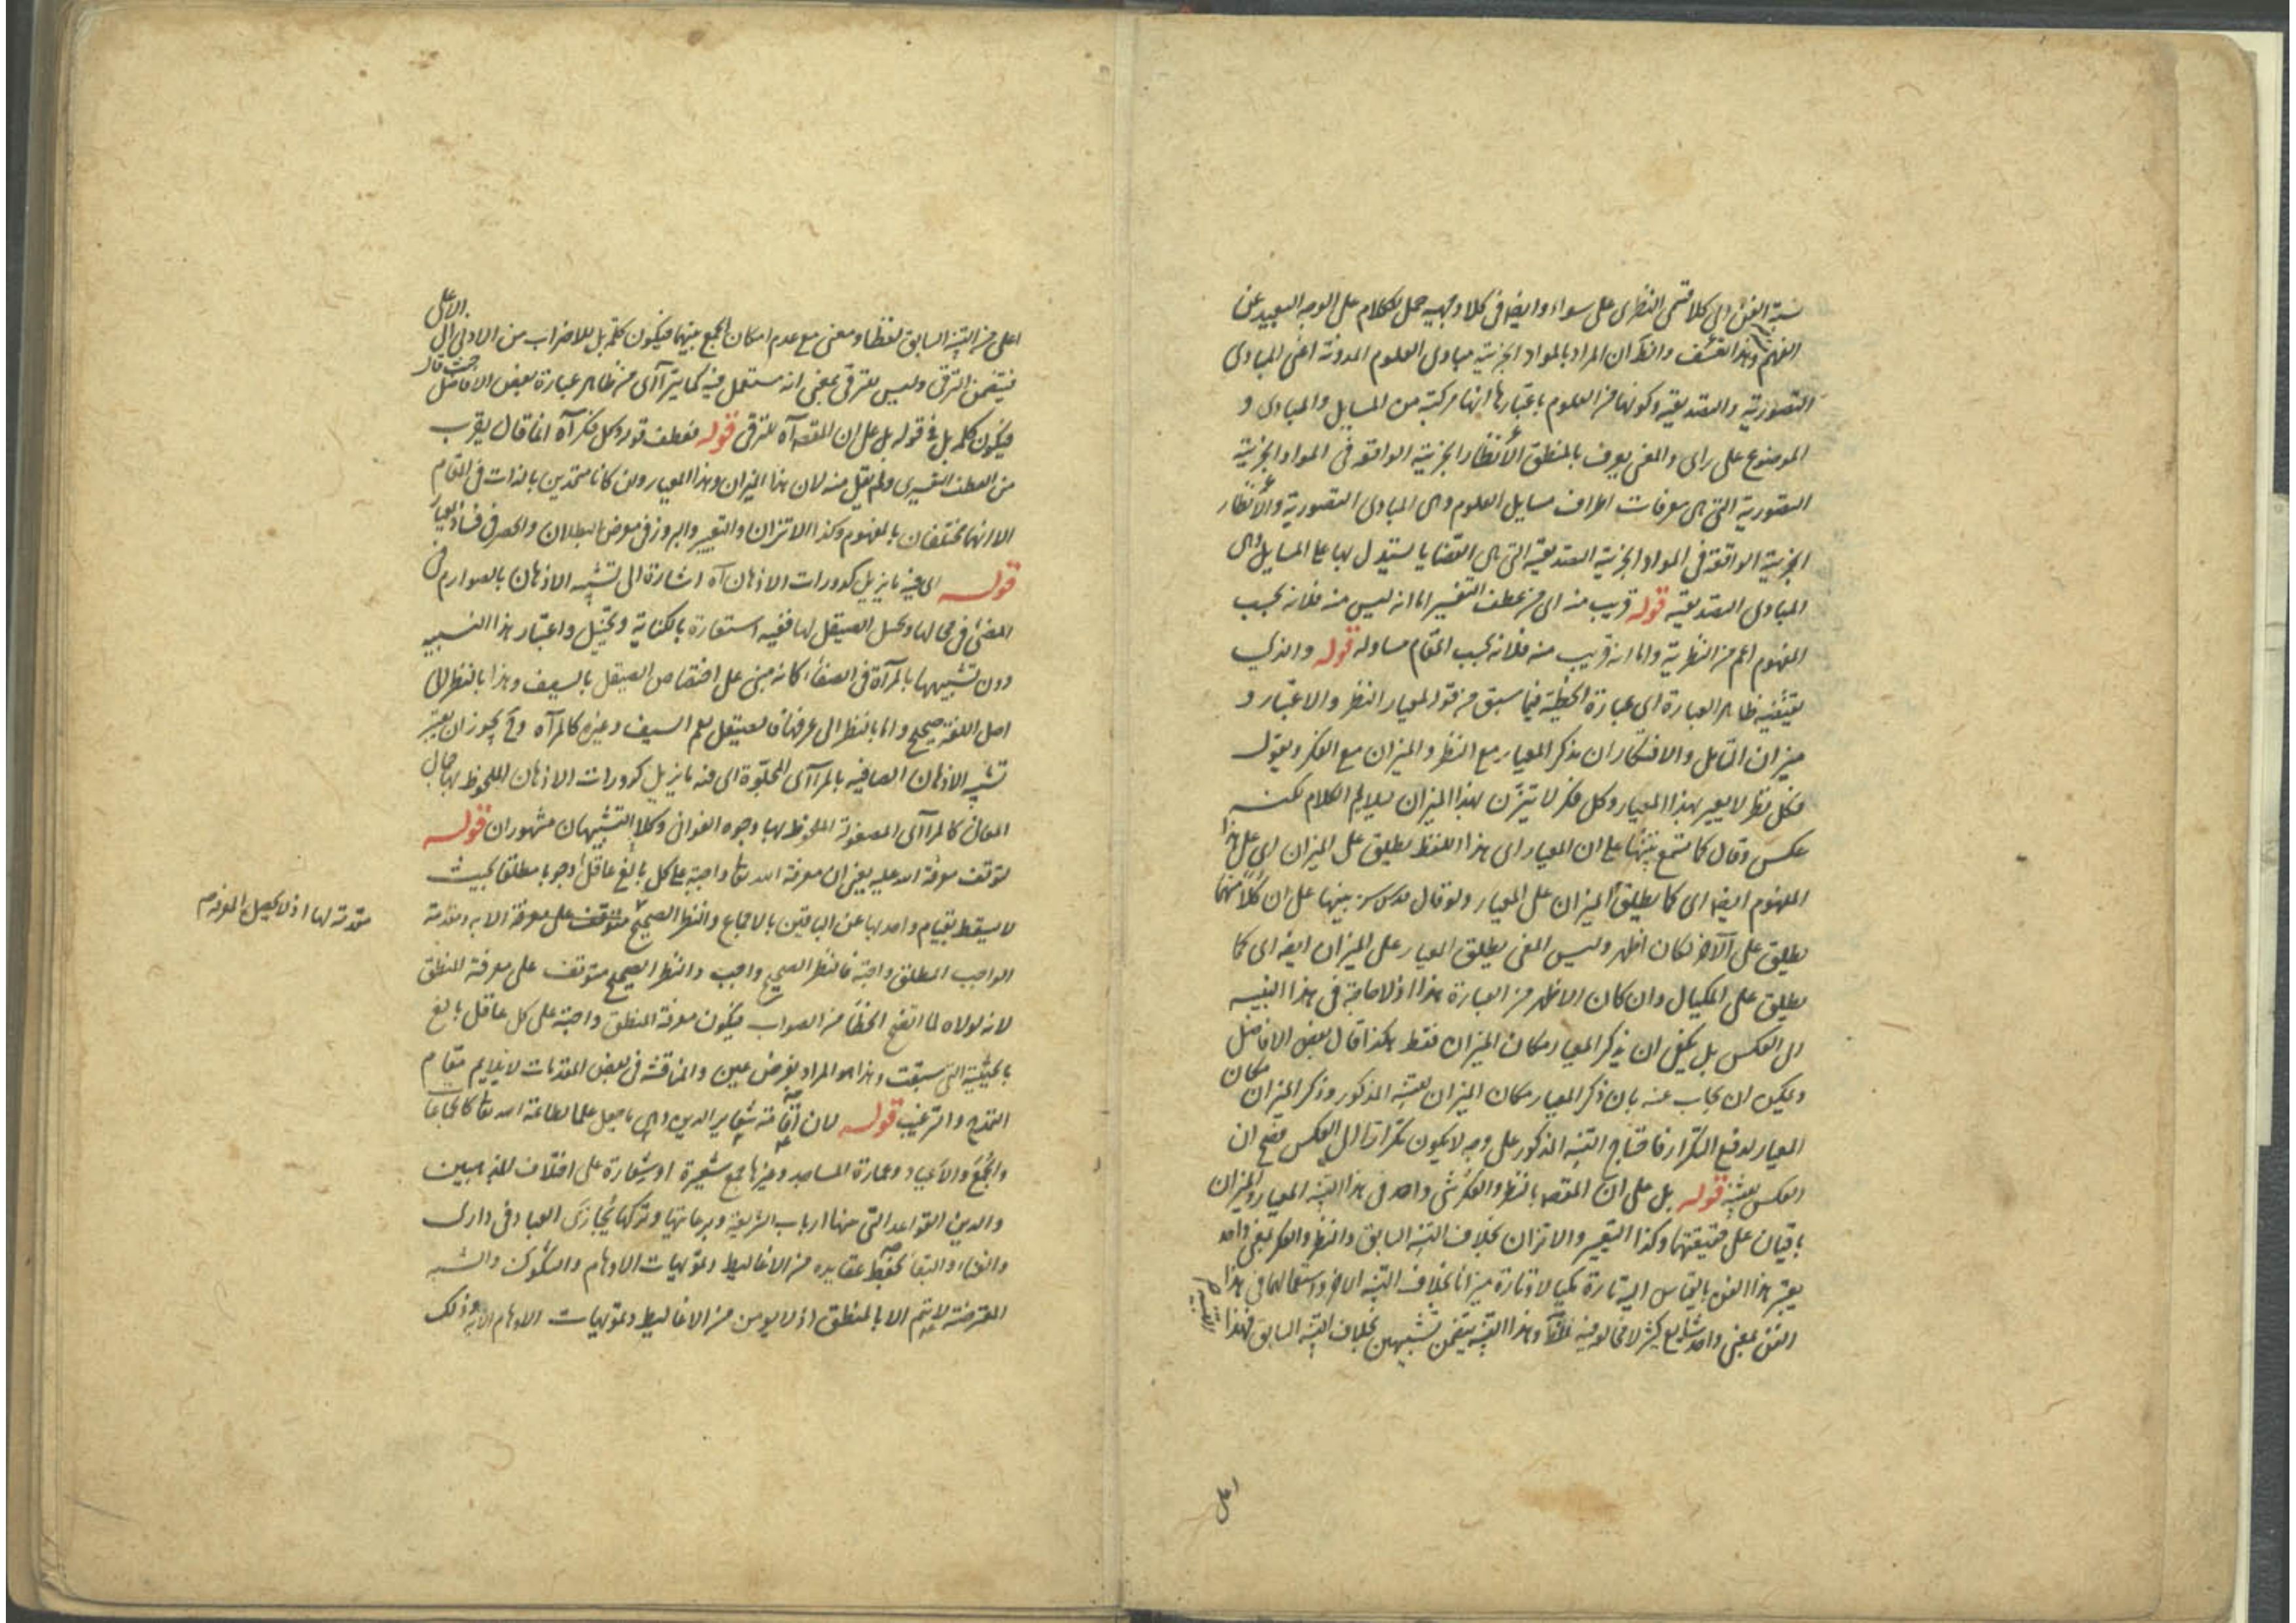 نسبة الفن الى كلا قسمى النظرى على سواء وايضا فى كلا وجهيه حمل الكلام على الوجه البعيد عن
الفهم وهذا تعسف والظ ان المراد بالمواد الجزئية مبادى العلوم المدونة اعنى المبادى
التصورية والتصديقية وكونها من العلوم باعتبار انها مركبة من المسايل والمبادى و
الموضوع على راى والمعنى يعرف بالمنطق الأنظار الجزئية الواقعه فى المواد الجزئية
التصورية التى هى معرفات اطراف مسايل العلوم وهى المبادى التصورية والأنظار
الجزئية الواقعة فى المواد الجزئية التصديقية التى هى القضايا يستدل بها على المسايل وهى
المبادى التصديقية قوله قريب منه اى من عطف التفسير اما انه ليس منه فلانه بحسب
المفهوم اعم من النظرية واما انه قريب منه فلانه بحسب المقام مساو له قوله والذى
يقتضيه ظاهر العبارة اى عبارة الخطبة فيما سبق من قوله لمعيار النظر والاعتبار و
ميزان التامل والافتكار ان يذكر المعيار مع النظر والميزان مع الفكر ويقول
فكل نظر لا يعير بهذا المعيار وكل فكر لا يتزن بهذا الميزان ليلايم الكلام لكنه
عكس وقال كما تسمع تنبيها على ان المعيار اى هذا اللفظ يطلق على الميزان اى على هذا
المفهوم ايضا اى كما يطلق الميزان على المعيار ولو قال قدس سره تنبيها على ان كلا منهما
يطلق على الآخر لكان اظهر وليس المعنى يطلق المعيار على الميزان ايضا اى كما
يطلق على المكيال وان كان الاظهر من العبارة هذا اذ لا حاجة فى هذا التنبيه
الى العكس بل يكفى ان يذكر المعيار مكان الميزان فقط هكذا قال بعض الافاضل
ويمكن ان يجاب عنه بان ذكر المعيار مكان الميزان للتنبيه المذكور وذكر الميزان مكان
المعيار لدفع التكرار فاحتاج التنبيه المذكور على وجه لا يكون تكرارا الى العكس فصح ان
العكس للتنبيه قوله بل على ان المقصد بالنظر والفكر شئ واحد فى هذا التنبيه المعيار والميزان
باقيان على حقيقتهما وكذا التعيير والاتزان بخلاف التنبيه السابق والنظر والفكر بمعنى واحد
يعتبر هذا الفن بالقياس اليه تارة مكيالا وتارة ميزانا بخلاف التنبيه الاخر واستعمالهما فى هذا
الفن بمعنى واحد شايع كثير لا مخالفة فيه وهذا التنبيه يتضمن تنبيهين بخلاف التنبيه السابق فهذا
اعلى
اعلى من التنبيه السابق لفظا ومعنى مع عدم امكان الجمع بينهما فيكون كلمة بل للاضراب من الادنى الى الاعلى
فيتضمن الترقى وليس للترقى بمعنى انه مستعمل فيه كما يترآى من ظاهر عبارة بعض الافاضل حيث قال
فيكون كلمة بل فى قوله بل على ان المقصد آه للترقى قوله فعطف قوله وكل فكر آه انما قال يقرب
من العطف التفسيرى ولم يقل منه لان هذا الميزان وهذا المعيار وان كانا متحدين بالذات فى المقام
الا انهما مختلفان بالمفهوم وكذا الاتزان والتعيير والبروز فى معرض البطلان والحصر فى فساد العيار
قوله اى غير ما يزيل كدورات الاذهان آه اشارة الى تشبيه الاذهان بالصوارم فى
المضئ فى محالها وتحيل الصيقل لها ففيه استعارة بالكناية وتخييل واعتبار هذا التشبيه
دون تشبيهها بالمرآة فى الصفاء كانه مبنى على اختصاص الصيقل بالسيف وهذا بالنظر الى
اصل اللغة صحيح واما بالنظر الى عرفنا فالصيقل يعم السيف وغيره كالمرآة وح يجوز ان يعتبر
تشبيه الاذهان الصافيه بالمرآى المجلوة اى فنه ما يزيل كدورات الاذهان الملحوظ بها جمال
المعانى كالمرآى المصقولة الملحوظ بها وجوه الغوانى وكلا التشبيهان مشهوران قوله
لتوقف معرفة الله عليه يعنى ان معرفة الله تعا واجبة على كل بالغ عاقل وجوبا مطلقا بحيث
لا يسقط بقيام واحد بها عن الباقين بالاجماع والنظر الصحيح متوقف على معرفة الا به ومقدمة
الواجب المطلق واجبة فالنظر الصحيح واجب والنظر الصحيح متوقف على معرفة المنطق
لانه لولاه لما اتضح الخطأ من الصواب فيكون معرفة المنطق واجبة على كل عاقل بالغ
بالحيثية التى سبقت وهذا هو المراد بفرض عين والمناقشة فى بعض المقدمات لا يلايم مقام
التمدح والترغيب قوله لان اقامة شعاير الدين وهى ما جعل علما لطاعة الله تعا كالجماعات
والجمع والاعياد وعمارة المساجد وغيرها جمع شعيرة او شعارة على اختلاف المذهبين
والدين القواعد التى ارباب الشريعة وبرعايتها وتركها يجازى العباد فى دارى
والفناء والبقاء بحفظ عقايده من الاغاليط وتمويهات الاوهام والشكوك والشبه
المعترضة لا يتم الا بالمنطق اذ لا يومن من الاغاليط وتمويهات الاوهام الا به وذلك
مقدمة لها اذ لا يحصل المعرفة